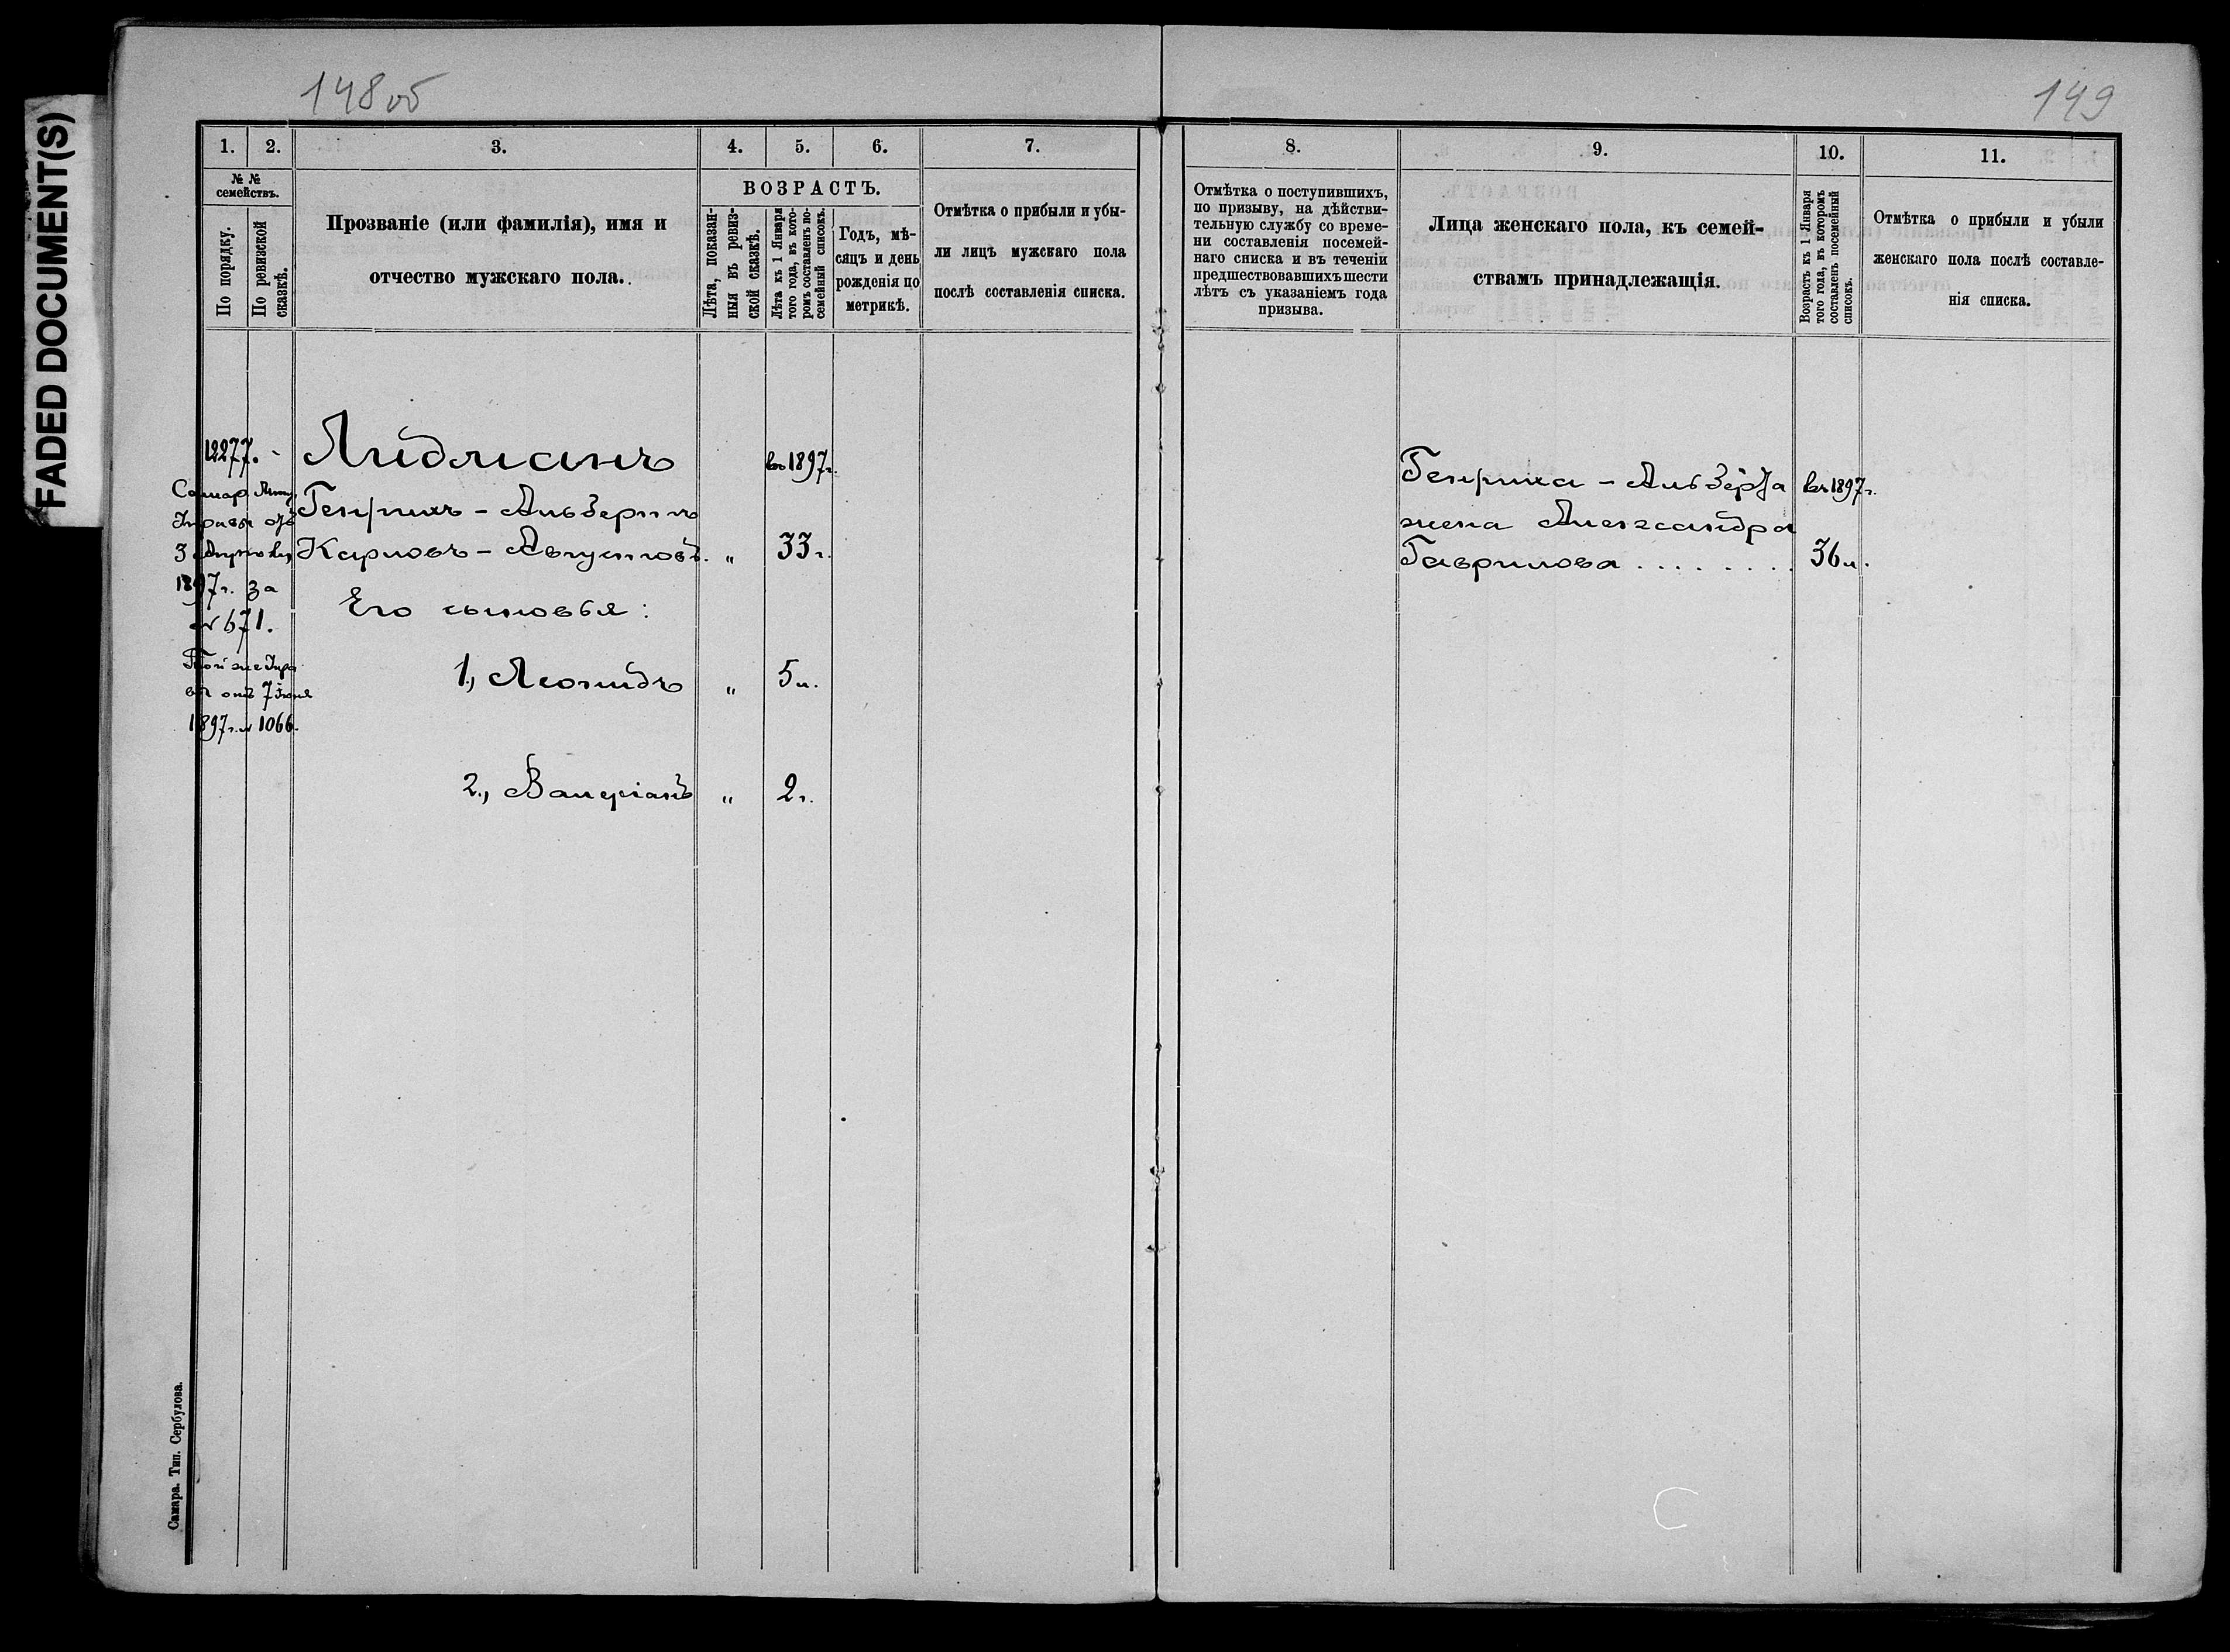 FADED DOCUMENT(S)
148 об
149
1.
2.
3.
4.
5.
6.
7.
8.
9.
10.
11.
№ №
семействъ.
По порядку.
По ревизской
сказкѣ.
Прозваніе (или фамилія), имя и
отчество мужскаго пола.
ВОЗРАСТЪ.
Лѣта, показан-
ныя въ ревиз-
ской сказкѣ.
Лѣта къ 1 Января
того года, въ кото-
ромъ составленъ по-
семейный списокъ.
Годъ, мѣ-
сяцъ и день
рожденія по
метрикѣ.
Отмѣтка о прибыли и убы-
ли лицъ мужскаго пола
послѣ составленія списка.
Отмѣтка о поступившихъ,
по призыву, на дѣйстви-
тельную службу со време-
ни составленія посемей-
наго списка и въ теченіи
предшествовавшихъ шести
лѣтъ съ указаніемъ года
призыва.
Лица женскаго пола, къ семей-
ствамъ принадлежащія.
Возрастъ къ 1 Января
того года, въ которомъ
составленъ посемейный
списокъ.
Отмѣтка о прибыли и убыли
женскаго пола послѣ составле-
нія списка.
12277. -
Самар.
Управы отъ
3
1897 г. за
№ 671.
Той же Упра
вы отъ 7 Іюня
1897 г. № 1066.
Лидманъ
въ 1897 г.
Генрихъ - Альбертъ
Карловъ - Августовъ. „ 33 г.
Его сыновья:
1., Леонидъ „ 5 л.
2., Валеріанъ „ 2 г.
Генриха - Альберта въ 1897 г.
жена Александра
Гаврилова . . . . . . . . 36 л.
Самара. Тип. Сербулова.